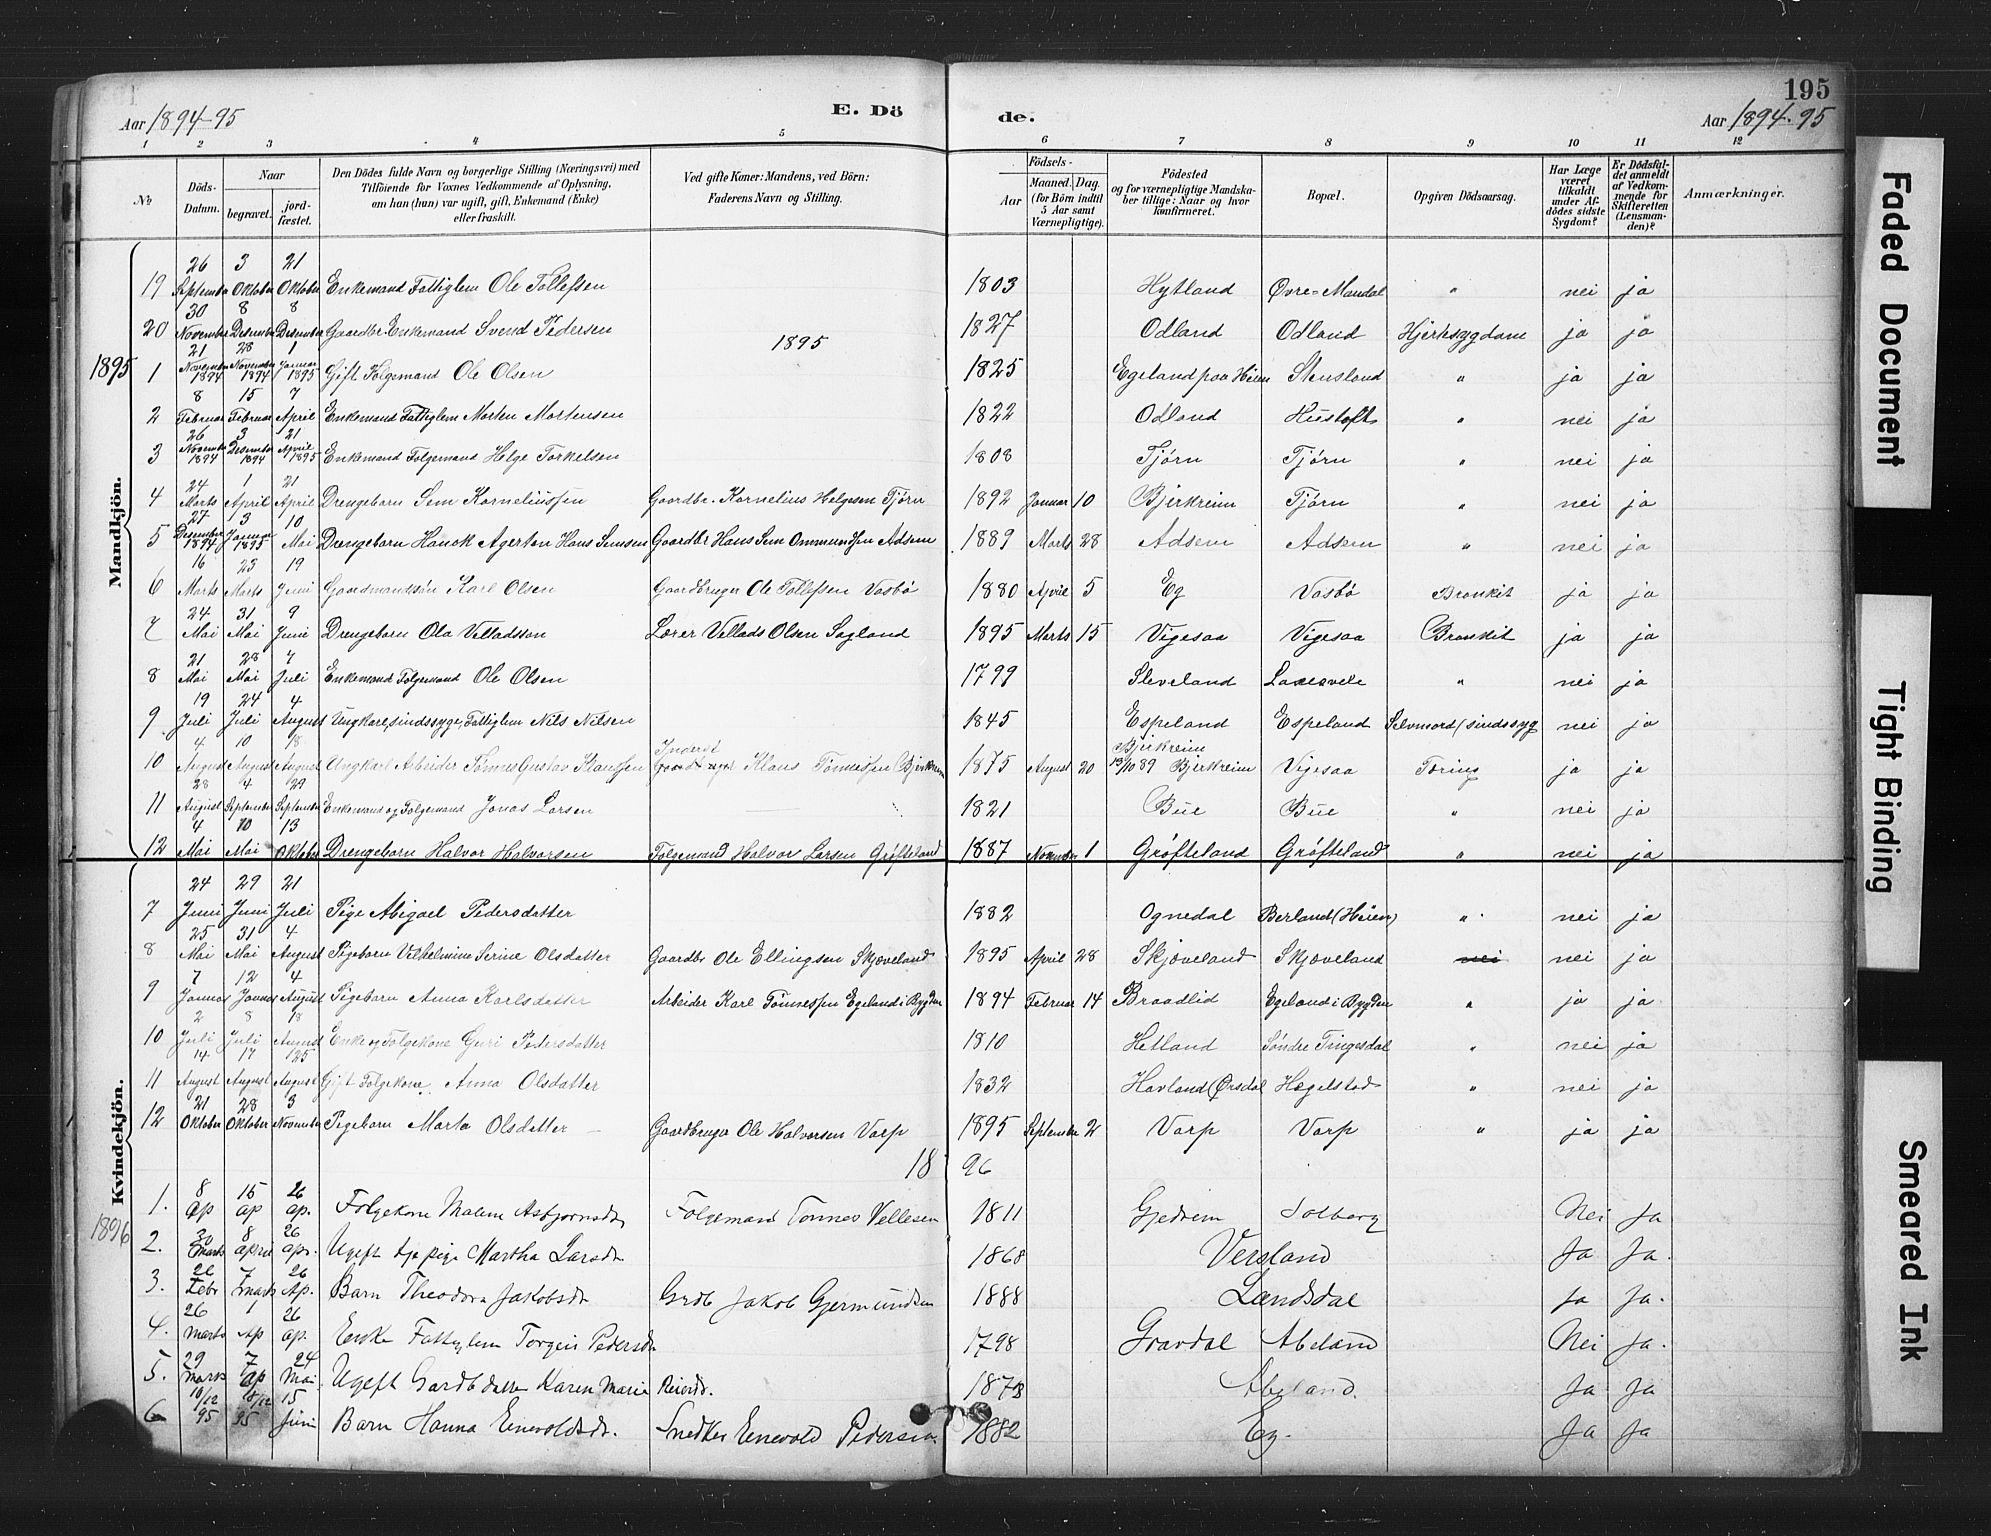 195
Aar 1894-95 E. Dö de. Aar 1894-95
1 2 3 4 5 6 7 8 9 10 11 12
No Döds-Datum. Naar begravet. jordfæstet. Den Dödes fulde Navn og borgerlige Stilling (Næringsvei) med Tilföiende for Voxnes Vedkommende af Oplysning, om han (hun) var ugift, gift, Enkemand (Enke) eller fraskilt. Ved gifte Koner: Mandens, ved Börn: Faderens Navn og Stilling. Födsels- Aar Maaned. Dag. (for Börn indtil 5 Aar samt Værnepligtige). Födested og for værnepligtige Mandskaber tillige: Naar og hvor konfirmeret. Bopæl. Opgiven Dödsaarsag. Har Læge været tilkaldt under Afdödes sidste Sygdom? Er Dödsfaldet anmeldt af Vedkommende for Skifteretten (Lensmanden)? Anmærkninger.
Mandkjön.
19 26 September 3 Oktober 21 Oktober Enkemand Fattiglem Ole Tollefsen 1803 Hytland Øvre-Mandal " nei ja
20 30 November 8 Desember 8 Desember Gaardbr. Enkemand Svend Pedersen 1827 Odland Odland Hjertesygdom ja ja
1895
1895 1 21 November 1894 28 November 1894 1 Januar 1895 Gift Folgemand Ole Olsen 1825 Egeland paa Heien Stensland " ja ja
2 8 Februar 15 Februar 7 April Enkemand Fattiglem Morten Mortensen 1822 Odland Hustoft " nei ja
3 26 November 1894 3 Desember 1894 21 April 1895 Enkemand Folgemand Helge Torkelsen 1808 Tjörn Tjörn " nei ja
4 24 Marts 1 April 21 April Drengebarn Sem Korneliussen Gaardbr. Kornelius Helgesen Tjörn 1892 Januar 10 Bjerkreim Tjörn " nei ja
5 27 Desember 1894 3 Januar 1895 10 Mai Drengebarn Hauck Agerton Hans Semsen Gaardbr Hans Sem Ommundsen Adsem 1889 Marts 28 Adsem Adsem " nei ja
6 16 Marts 25 Marts 19 Juni Gaardmandssön Karl Olsen Gaardbruger Ole Tollefsen Vasbö 1880 April 5 Eg Vasbö Bronkit ja ja
7 24 Mai 31 Mai 9 Juni Drengebarn Ola Velladsson Lærer Vellads Olsen Sagland 1895 Marts 15 Vigesaa Vigesaa Bronkit ja ja
8 21 Mai 28 Mai 7 Juli Enkemand Folgemand Ole Olsen 1799 Sleveland Laxesvele " nei ja
9 19 Juli 24 Juli 4 August Ungkarl, sindssyge, Fattiglem Nils Nilsen 1845 Espeland Espeland Selvmord (sindssyg nei ja
10 4 August 10 August 18 August Ungkarl Arbeider Tönnes Gustav Klausen Inderst Klaus Tönnessen Bjerkreim 1875 August 20 Bjerkreim 13/10 89 Bjerkreim Vigesaa Tæring ja ja
11 28 August 4 September 29 September Enkemand og Folgemand Jonas Larsen 1821 Bue Bue " nei ja
12 4 Mai 10 Mai 13 Oktober Drengebarn Halvor Halvorsen Folgemand Halvor Larsen Gröfteland 1887 November 1 Gröfteland Gröfteland " nei ja
Kvindekjön.
7 24 Juni 29 Juni 21 Juli Pige Abigael Pedersdatter 1882 Ognedal Berland (Heien) " nei ja
8 25 Mai 31 Mai 4 August Pigebarn Vilhelmine Serine Olsdatter Gaardbr Ole Ellingsen Skjæveland 1895 April 28 Skjæveland Skjæveland nei nei ja
9 7 Januar 12 Januar 4 August Pigebarn Anna Karlsdatter Arbeider Karl Tönnessen Egeland i Bygden 1894 Februar 14 Braadlid Egeland i Bygden " ja ja
10 2 Juli 8 Juli 18 August Enke og Folgekone Guri Pedersdatter 1810 Hetland Söndre Tingesdal " nei ja
11 14 August 17 August 25 August Gift Folgekone Anna Olsdatter 1832 Havland (Ørsdal Hegelstad " nei ja
12 21 Oktober 28 Oktober 3 November Pigebarn Marta Olsdatter Gaardbruger Ole Halvorsen Varp 1895 September 2 Varp Varp " ja ja
18 96
1896
1. 8 Ap 15 ap 26 ap. Folgekone Malene Asbjornsdt Folgemand Tonnes Vellesen 1811 Gjedrem Solberg Nei Ja
2. 30 Marts 8 april 26 apr. Ugift tje pige Martha Larsdt 1868 Versland Ja Ja.
3. 26 Febr 7 marts 26 Ap. Barn Theodora Jakobsdt Grdb Jakob Gjermundsen 1888 Landsdal Ja Ja.
4. 26 marts 1 Ap 26 ap. Enke Fattiglem Torgeir Pedersdt 1798 Gravdal Abeland Nei Ja.
5. 29 marts 7 ap 24 Mai Ugift Gardb datter Karen Marie Reiersdt. 1873 Abeland. Ja Ja
6 10/12 95 18/12 95 15 Juni Barn Hanna Enevoldsdt. Snedker Enevold Pedersen 1882 Eg. Ja Ja
Faded Document
Tight Binding
Smeared Ink